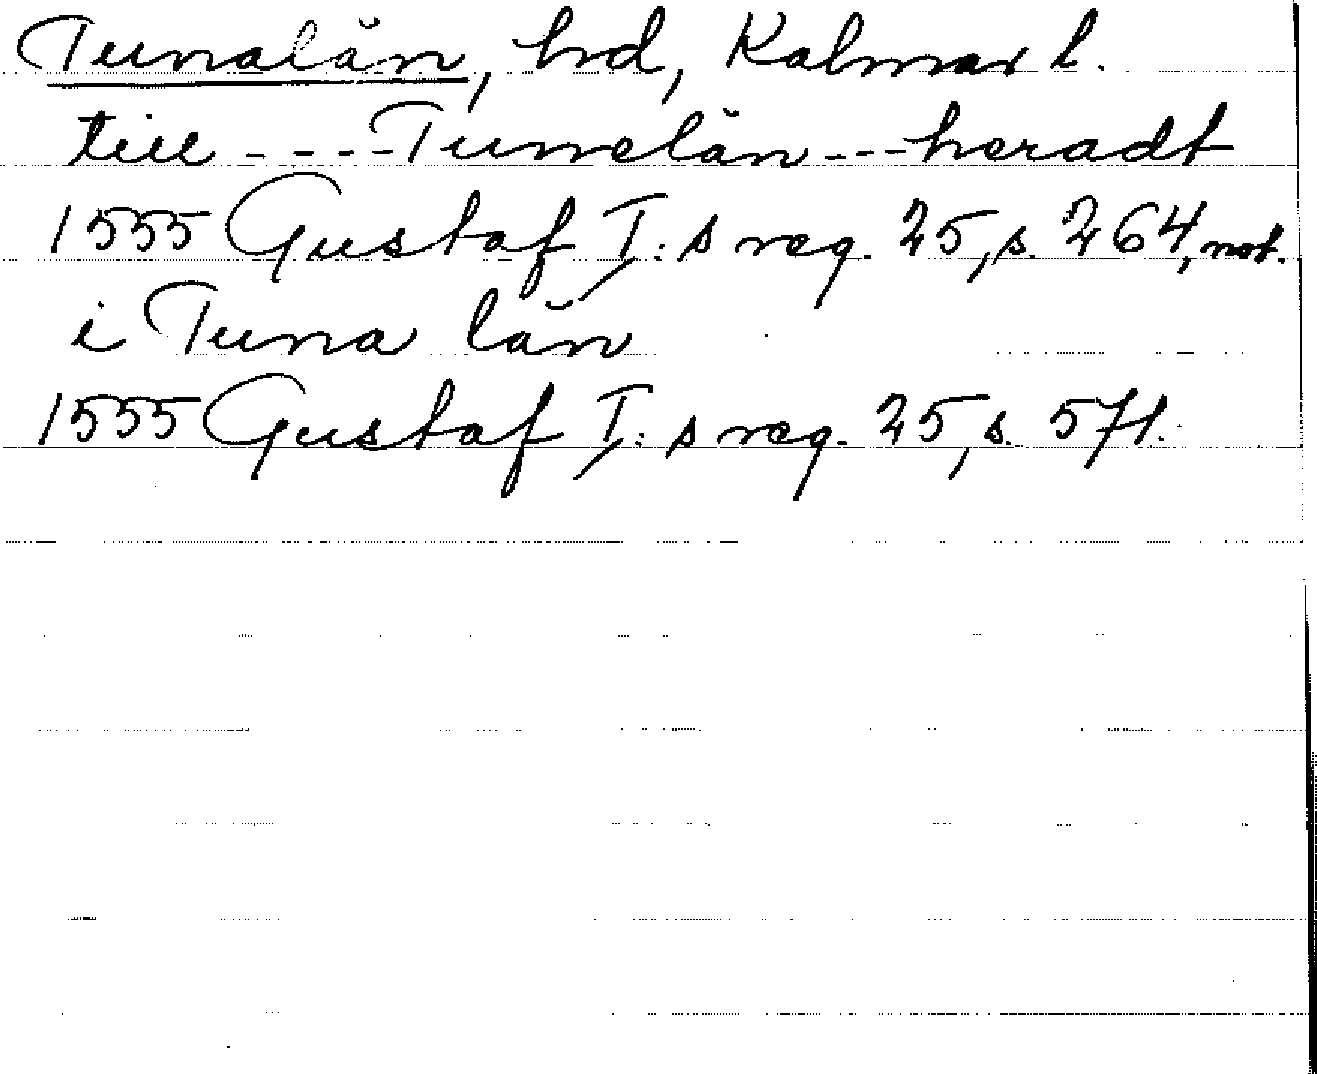 Tunalän, hd, Kalmar l.
till - - - - Tunelän - - - heradt
1555 Gustaf I:s reg. 25, s. 264, not.
i Tuna län
1555 Gustaf I:s reg. 25, s. 571.